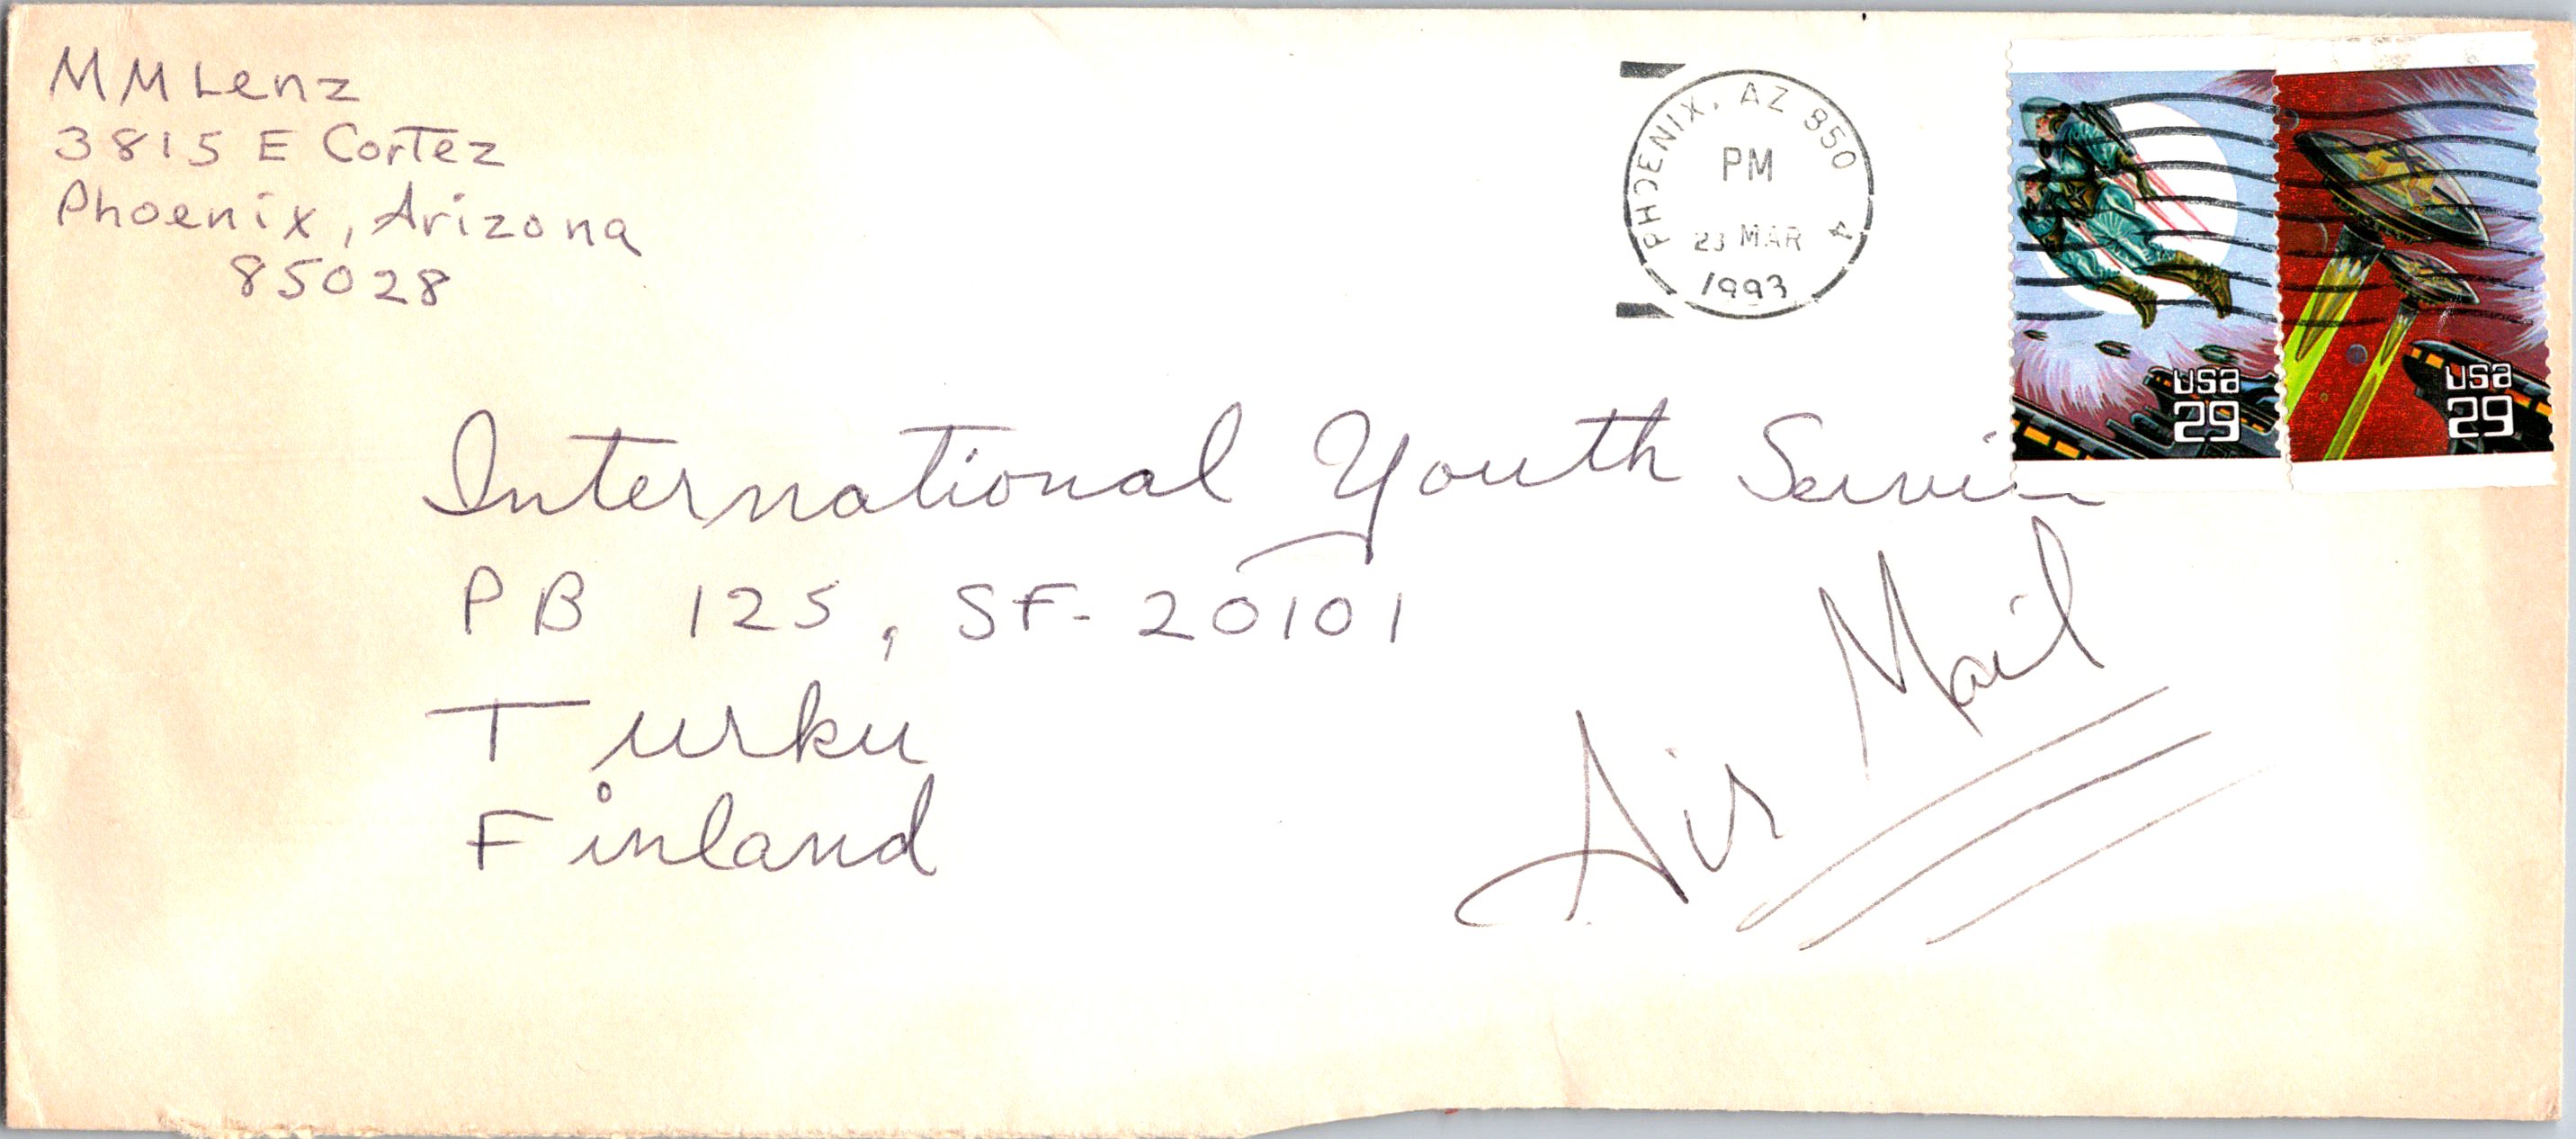 MM Lenz
3815 E Cortez
Phoenix, Arizona
85028
PHOENIX, AZ 850 4
PM
23 MAR
1993
usa
29
usa
29
International Youth Service
PB 125, SF-20101
Turku
Finland
Air Mail